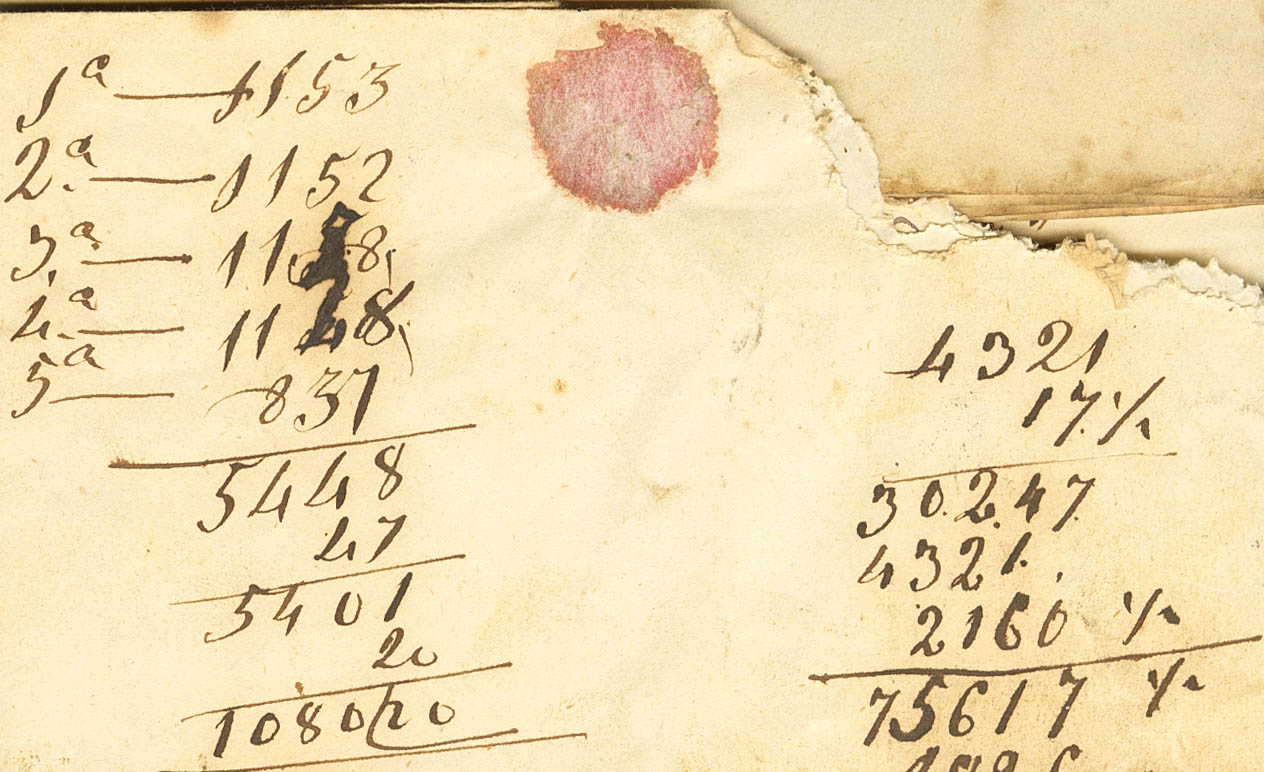 1ª — 1153
2ª — 1152
3ª — 11 8
4ª — 1148
5ª — 837
5448
47
5401
20
108020
4321
17 ½
30247
4321
2160 ½
75617 ½